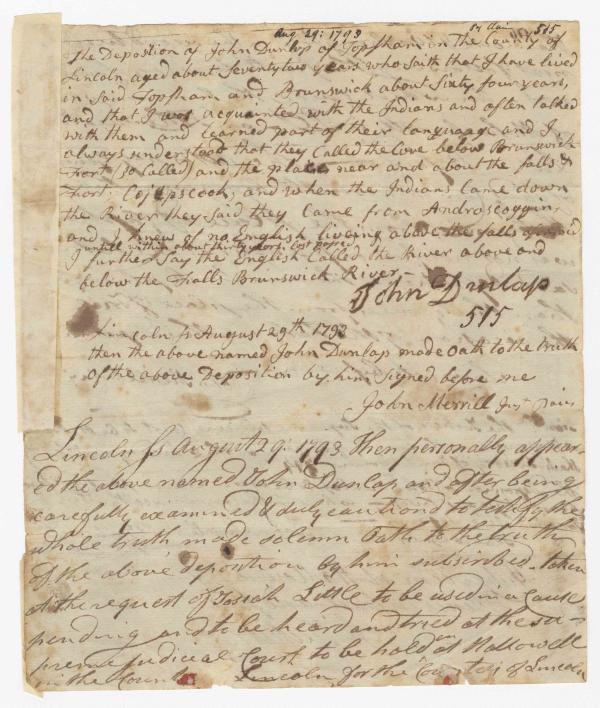 Aug 29: 1793
515
The Deposition of John Dunlap of Topsham in the County of
Lincoln aged about Seventytwo years who saith that I have lived
in said Topsham and Brunswick about Sixty four years,
and that I was acquainted with the Indians and often talked
with them and learned part of their language and I
always understood that they Called the Cove below Brunswick
Fort (so Called) and the places near and about the falls &
Fort Cojepscook, and when the Indians Came down
the River they said they Came from Androscoggin,
and I knew of no English liveing above the falls
untill within about thirty years last passed
I further Say the English Called the River above and
below the Falls Brunswick River
John Dunlap
515
Lincoln ss August 29th 1793
then the above named John Dunlap made Oath to the truth
of the above Deposition by him Signed before me
John Merrill Just Pacis
Lincoln ss August 29: 1793 Then personally appear-
ed the above named John Dunlap and after being
carefully examined & duly cautiond to testify the
whole truth made solemn Oath to the truth
of the above depostion by him subscribed. taken
at the request of Josiah Little to be used in a Cause
pending and to be heard and tried at the su-
preme Judicial Court to be hold at Hallowell
in the County Lincoln for the Counties of Lincoln